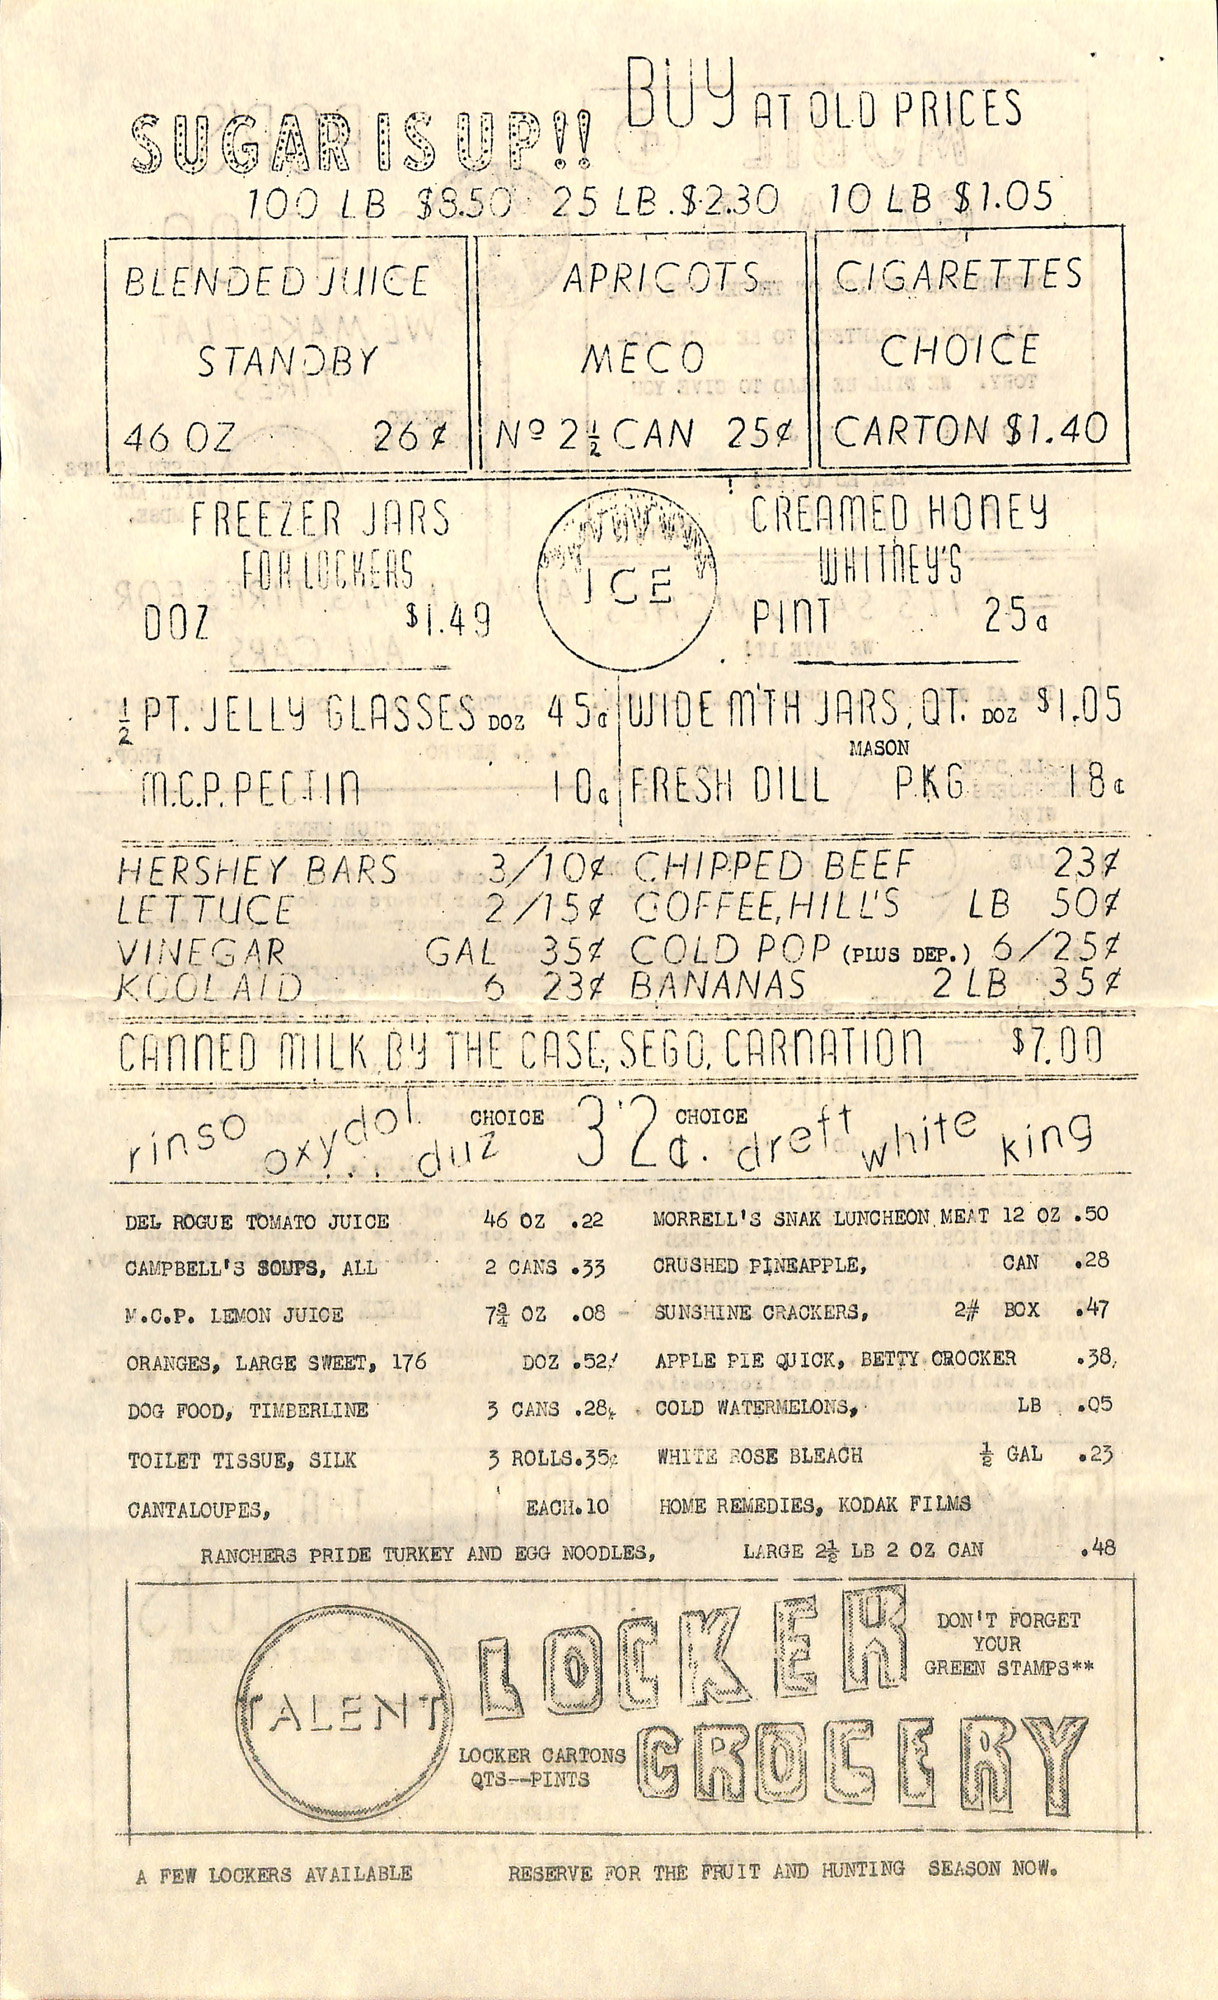 SUGAR IS UP!! BUY AT OLD PRICES
100 LB $8.50 25 LB. $2.30 10 LB $1.05
BLENDED JUICE
STANDBY
46 OZ 26¢
APRICOTS
MECO
Nº 2½ CAN 25¢
CIGARETTES
CHOICE
CARTON $1.40
FREEZER JARS
FOR LOCKERS
DOZ $1.49
ICE
CREAMED HONEY
WHITNEY'S
PINT 25¢
½ PT. JELLY GLASSES DOZ 45¢
M.C.P. PECTIN 10¢
WIDE M'TH JARS, QT. DOZ $1.05
MASON
FRESH DILL PKG 18¢
HERSHEY BARS 3/10¢ CHIPPED BEEF 23¢
LETTUCE 2/15¢ COFFEE, HILL'S LB 50¢
VINEGAR GAL 35¢ COLD POP (PLUS DEP.) 6/25¢
KOOLAID 6 23¢ BANANAS 2 LB 35¢
CANNED MILK BY THE CASE, SEGO, CARNATION $7.00
rinso oxydol... duz CHOICE 32¢. CHOICE dreft white king
DEL ROGUE TOMATO JUICE 46 OZ .22 MORRELL'S SNAK LUNCHEON MEAT 12 OZ .50
CAMPBELL'S SOUPS, ALL 2 CANS .33 CRUSHED PINEAPPLE, CAN .28
M.C.P. LEMON JUICE 7¾ OZ .08 SUNSHINE CRACKERS, 2# BOX .47
ORANGES, LARGE SWEET, 176 DOZ .52 APPLE PIE QUICK, BETTY CROCKER .38
DOG FOOD, TIMBERLINE 3 CANS .28 COLD WATERMELONS, LB .05
TOILET TISSUE, SILK 3 ROLLS.35 WHITE ROSE BLEACH ½ GAL .23
CANTALOUPES, EACH.10 HOME REMEDIES, KODAK FILMS
RANCHERS PRIDE TURKEY AND EGG NOODLES, LARGE 2½ LB 2 OZ CAN .48
TALENT
LOCKER
GROCERY
DON'T FORGET
YOUR
GREEN STAMPS**
LOCKER CARTONS
QTS--PINTS
A FEW LOCKERS AVAILABLE RESERVE FOR THE FRUIT AND HUNTING SEASON NOW.